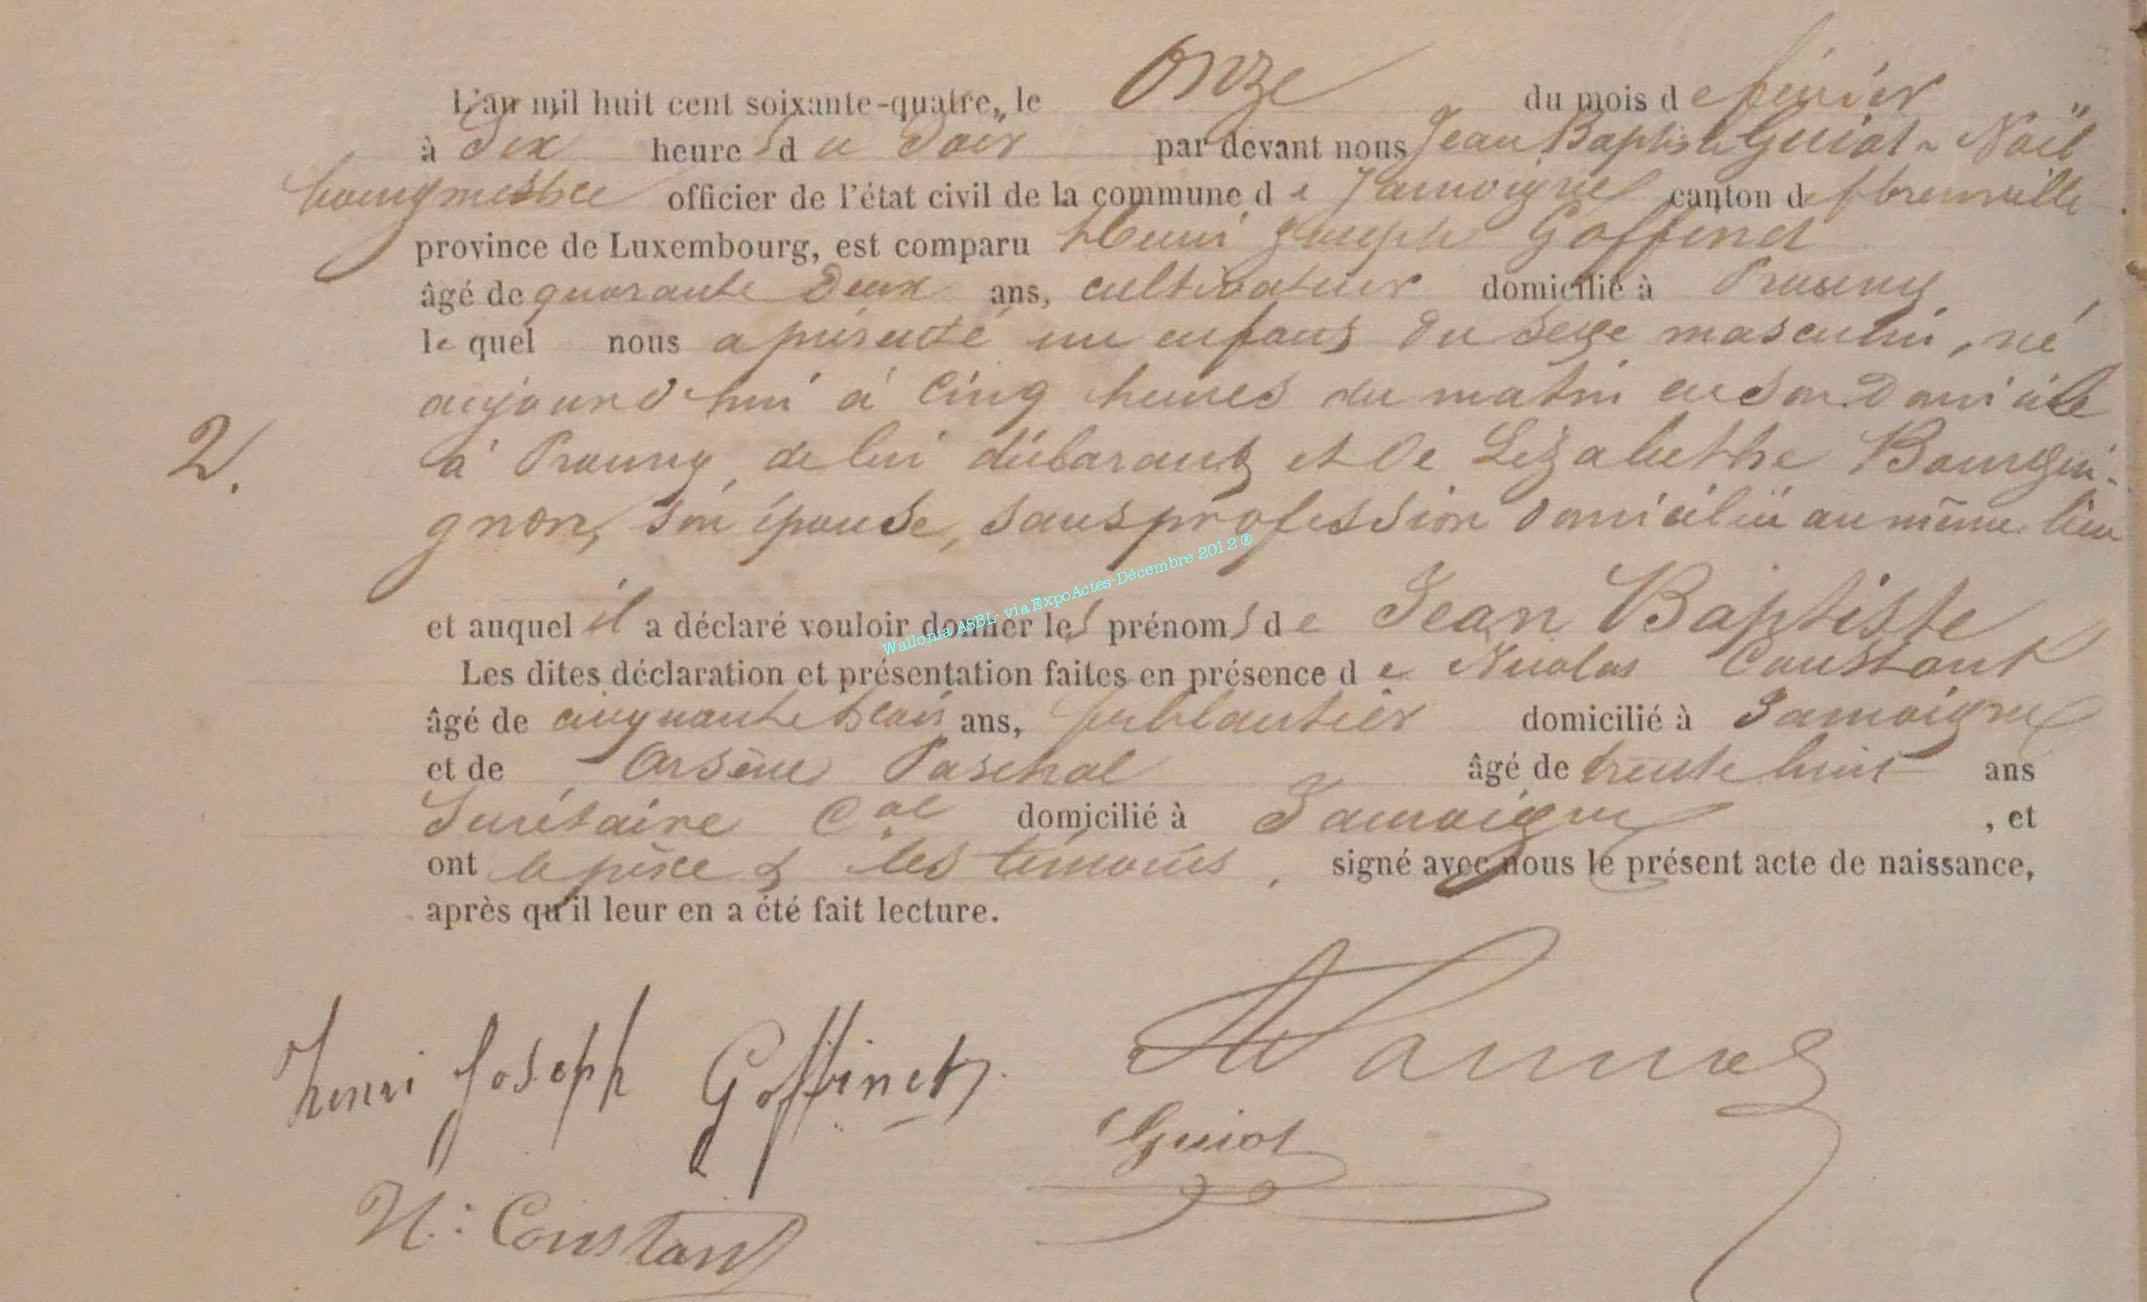 L'an mil huit cent soixante-quatre, le Onze du mois de février
à Six heures du Soir par devant nous Jean Baptiste Guiot-Noël
bourgmestre officier de l'état civil de la commune de Jamoigne canton de florenville
province de Luxembourg, est comparu Henri Joseph Goffinet
âgé de quarante Deux ans, cultivateur domicilié à Prouvy
le quel nous a présenté un enfant du sexe masculin, né
aujourd'hui à Cinq heures du matin en son Domicile
2. à Prouvy, de lui déclarant et de Lizabethe Bourgui-
gnon, son épouse, sans profession domiciliée au même lieu
et auquel il a déclaré vouloir donner les prénoms de Jean Baptiste
Les dites déclaration et présentation faites en présence de Nicolas Constant
âgé de cinquante trois ans, ferblantier domicilié à Jamoigne
et de Arsène Paschal âgé de trente huit ans
Secrétaire Cal domicilié à Jamoigne , et
ont le père & les témoins, signé avec nous le présent acte de naissance,
après qu'il leur en a été fait lecture.
Wallonia ASBL: via ExpoActes-Décembre 2012®
henri Joseph Goffinet
Guiot
N: Constant